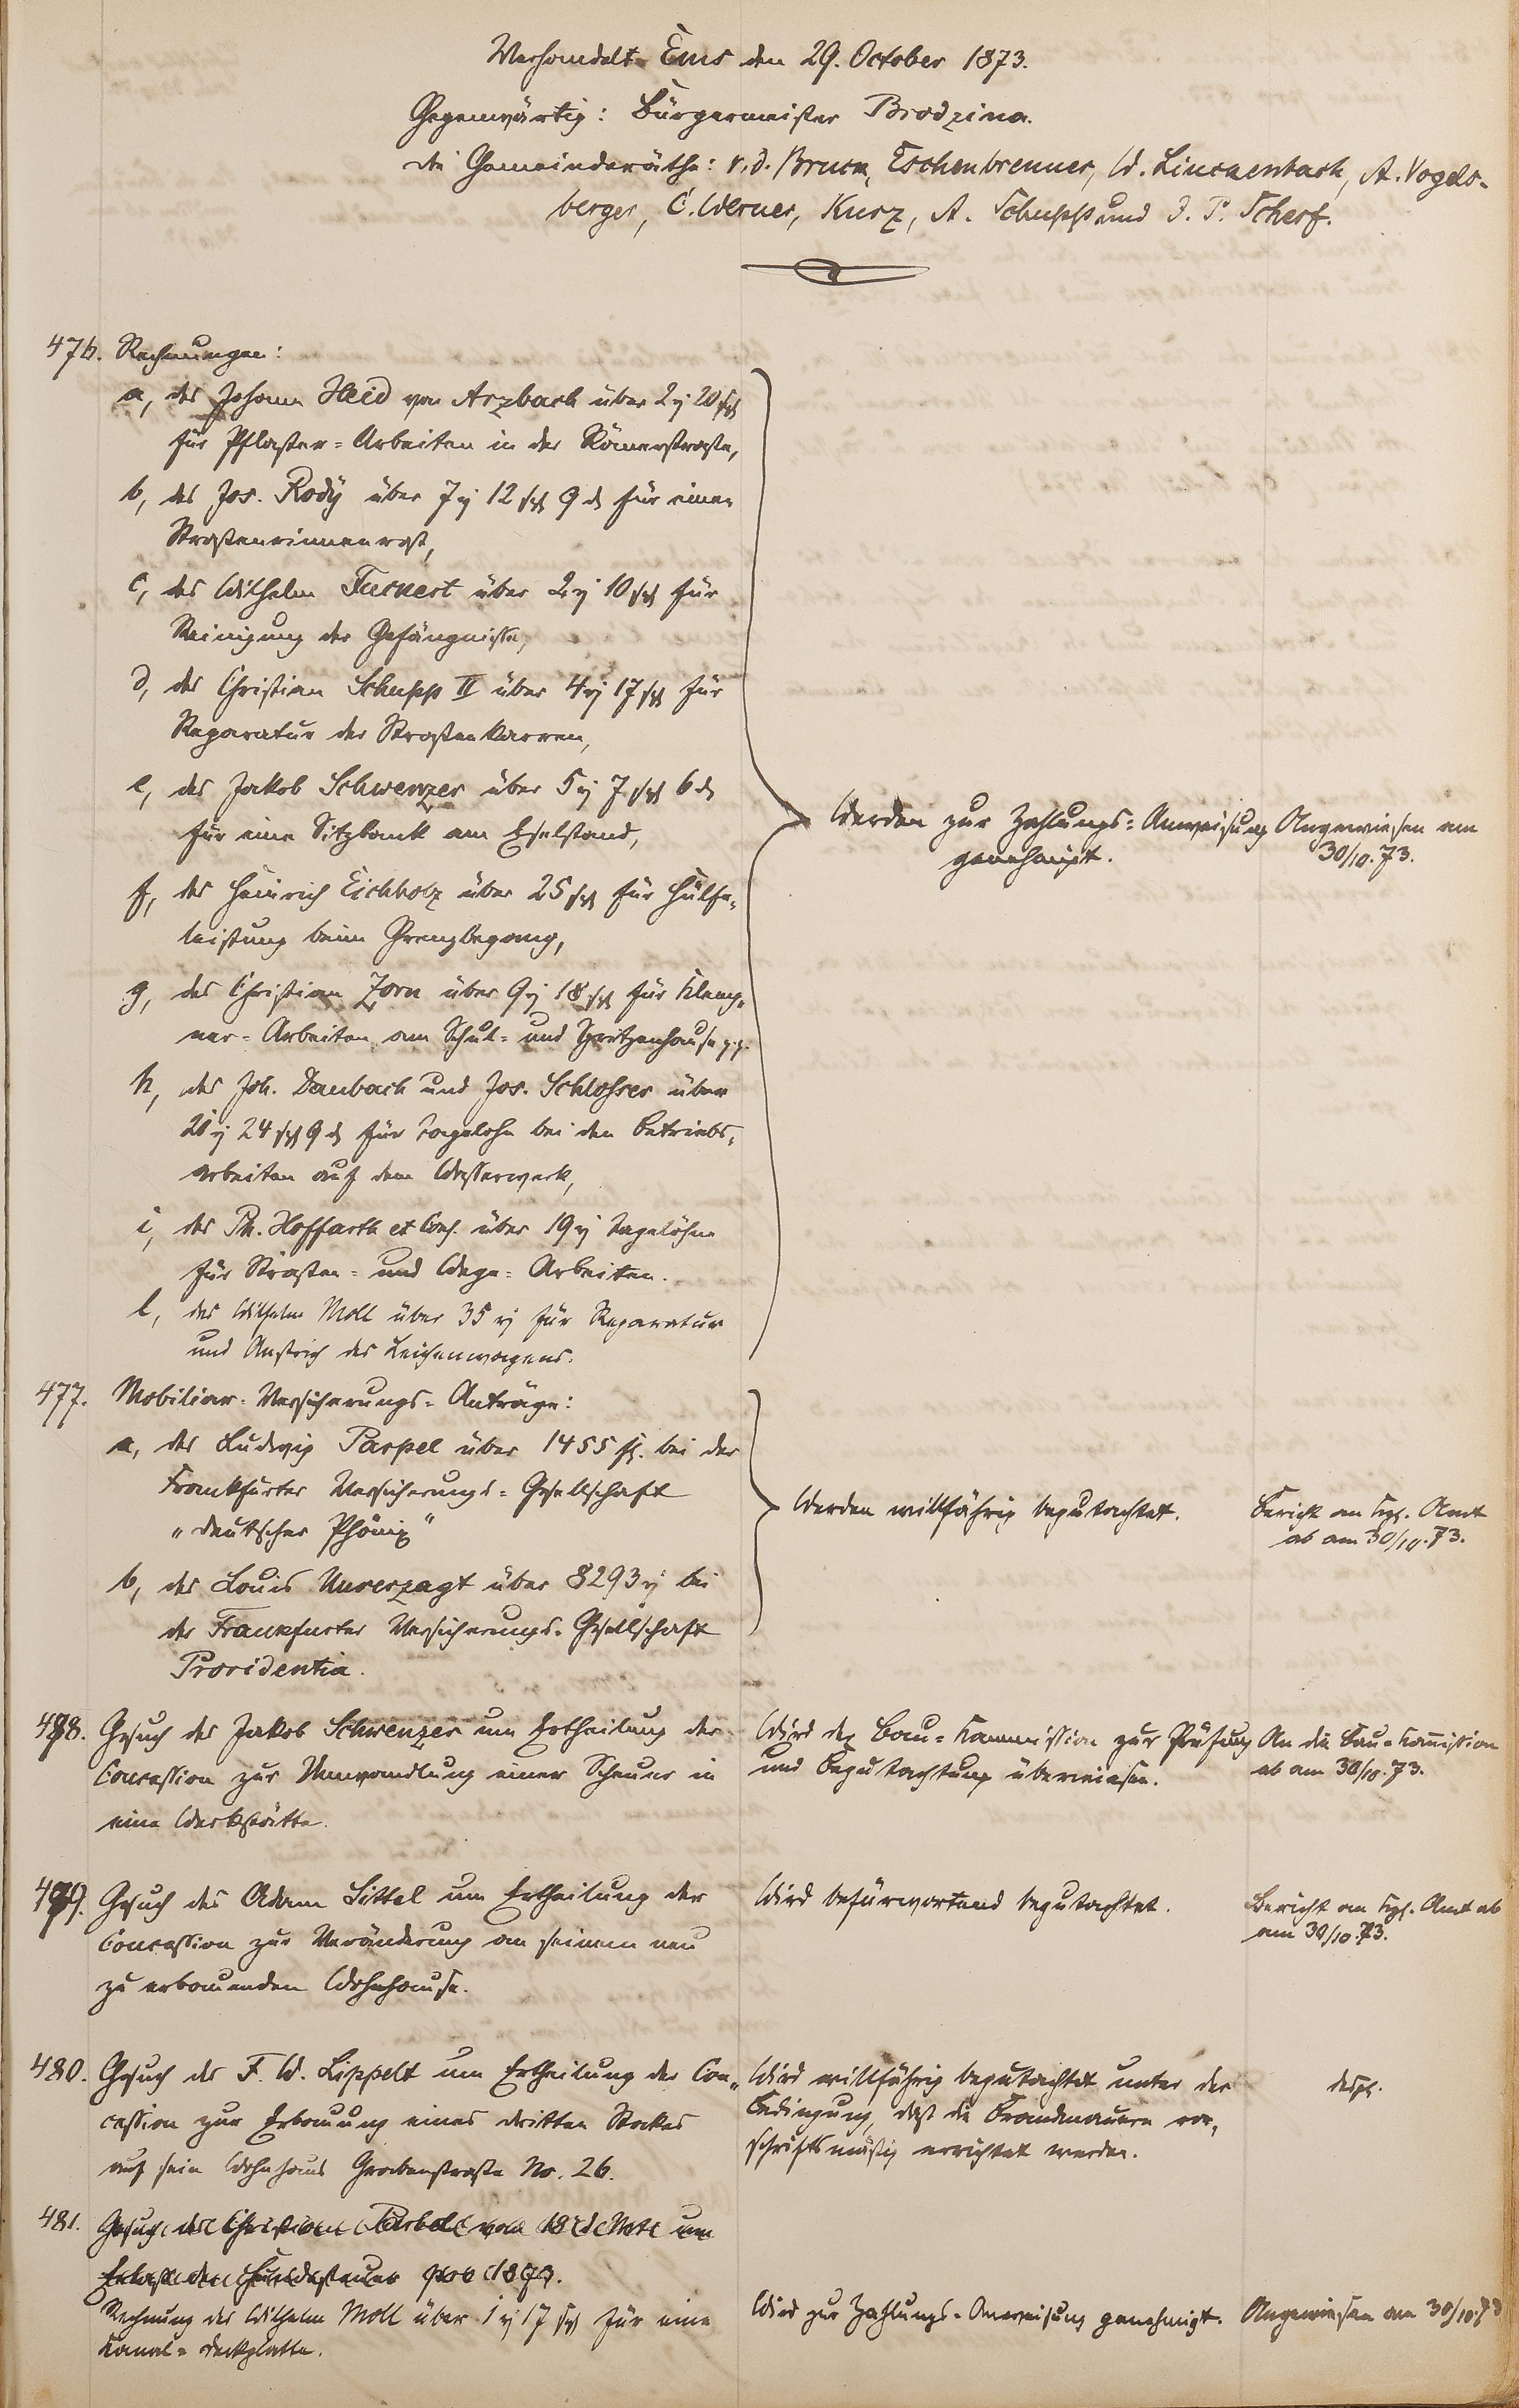 Verhandelt Ems den 29. October 1873.
Gegenwärtig: Bürgermeister Brodzina.
die Gemeinderäthe: v. d. Bruck, Eschenbrenner, W. Linckenbach, A. Vogels-
berger, C. Werner, Kurz, A. Schupp und J. P. Scherf.
476. Rechnungen:
a, des Johann Heid von Arzbach über 2 20
für Pflaster-Arbeiten in der Römerstraße,
b, des Jos. Rody über 7 12 9 für einen
Straßenrinnenrost,
c, des Wilhelm über 2 10 für
Reinigung der Gefängnisse,
d, des Christian Schupp II über 4 17 für
Reparatur der Straßenkarren,
e, des Jakob Schwenzer über 5 7 6
für eine Sitzbank am Eselstand,
Werden zur Zahlungs-Anweisung
genehmigt.
Angewiesen am
30/10.73.
f, des Heinrich Eichholz über 25 für Hülfe-
leistung beim Grenzbegang,
g, des Christian Zorn über 9 18 für Klemp-
ner-Arbeiten am Schul- und Spritzenhause pp.
h, des Joh. Daubach und Jos. Schlosser über
24 9 für Tagelohn bei den Betriebs-
arbeiten auf dem Wasserwerk,
i, des Ph. Hoffarth et Cons. über 19 Tagelöhne
für Straßen- und Wege-Arbeiten.
l, des Wilhelm Moll über 35 für Reparatur
und Anstrich des Leichenwagens.
477. Mobiliar-Versicherungs-Anträge:
a, des Ludwig Pappel über 1455 fl. bei der
Frankfurter Versicherungs-Gesellschaft
„deutscher Phönix“
b, des Louis Unverzagt über 8293 bei
der Frankfurter Versicherungs-Gesellschaft
Providentia.
Werden willfährig begutachtet.
Bericht an Kgl. Amt
ab am 30/10.73.
478. Gesuch des Jakob Schwenzer um Ertheilung der
Concession zur Umwandlung einer Scheuer in
eine Werkstätte.
Wird der Bau-Kommission zur Prüfung
und Begutachtung überwiesen.
An die Bau-Kommission
ab am 30/10.73.
479. Gesuch des Adam Sittel um Ertheilung der
Concession zur Veränderung an seinem neu
zu erbauenden Wohnhause.
Wird befürwortend begutachtet.
Bericht an Kgl. Amt ab
am 30/10.73.
480. Gesuch des F. W. Lippelt um Ertheilung der Con-
cession zur Erbauung eines dritten Stockes
auf sein Wohnhaus Grabenstraße No. 26.
Wird willfährig begutachtet unter der
Bedingung, daß die Brandmauern vor-
schriftsmäßig errichtet werden.
desgl.
481. Gesuch des Christian vom 18. d. Mts. um
Erlaß der Hundesteuer pro 1873.
Rechnung des Wilhelm Moll über 1 17 für eine
Kanal-Deckplatte.
Wird zur Zahlungs-Anweisung genehmigt.
Angewiesen am 30/10.73